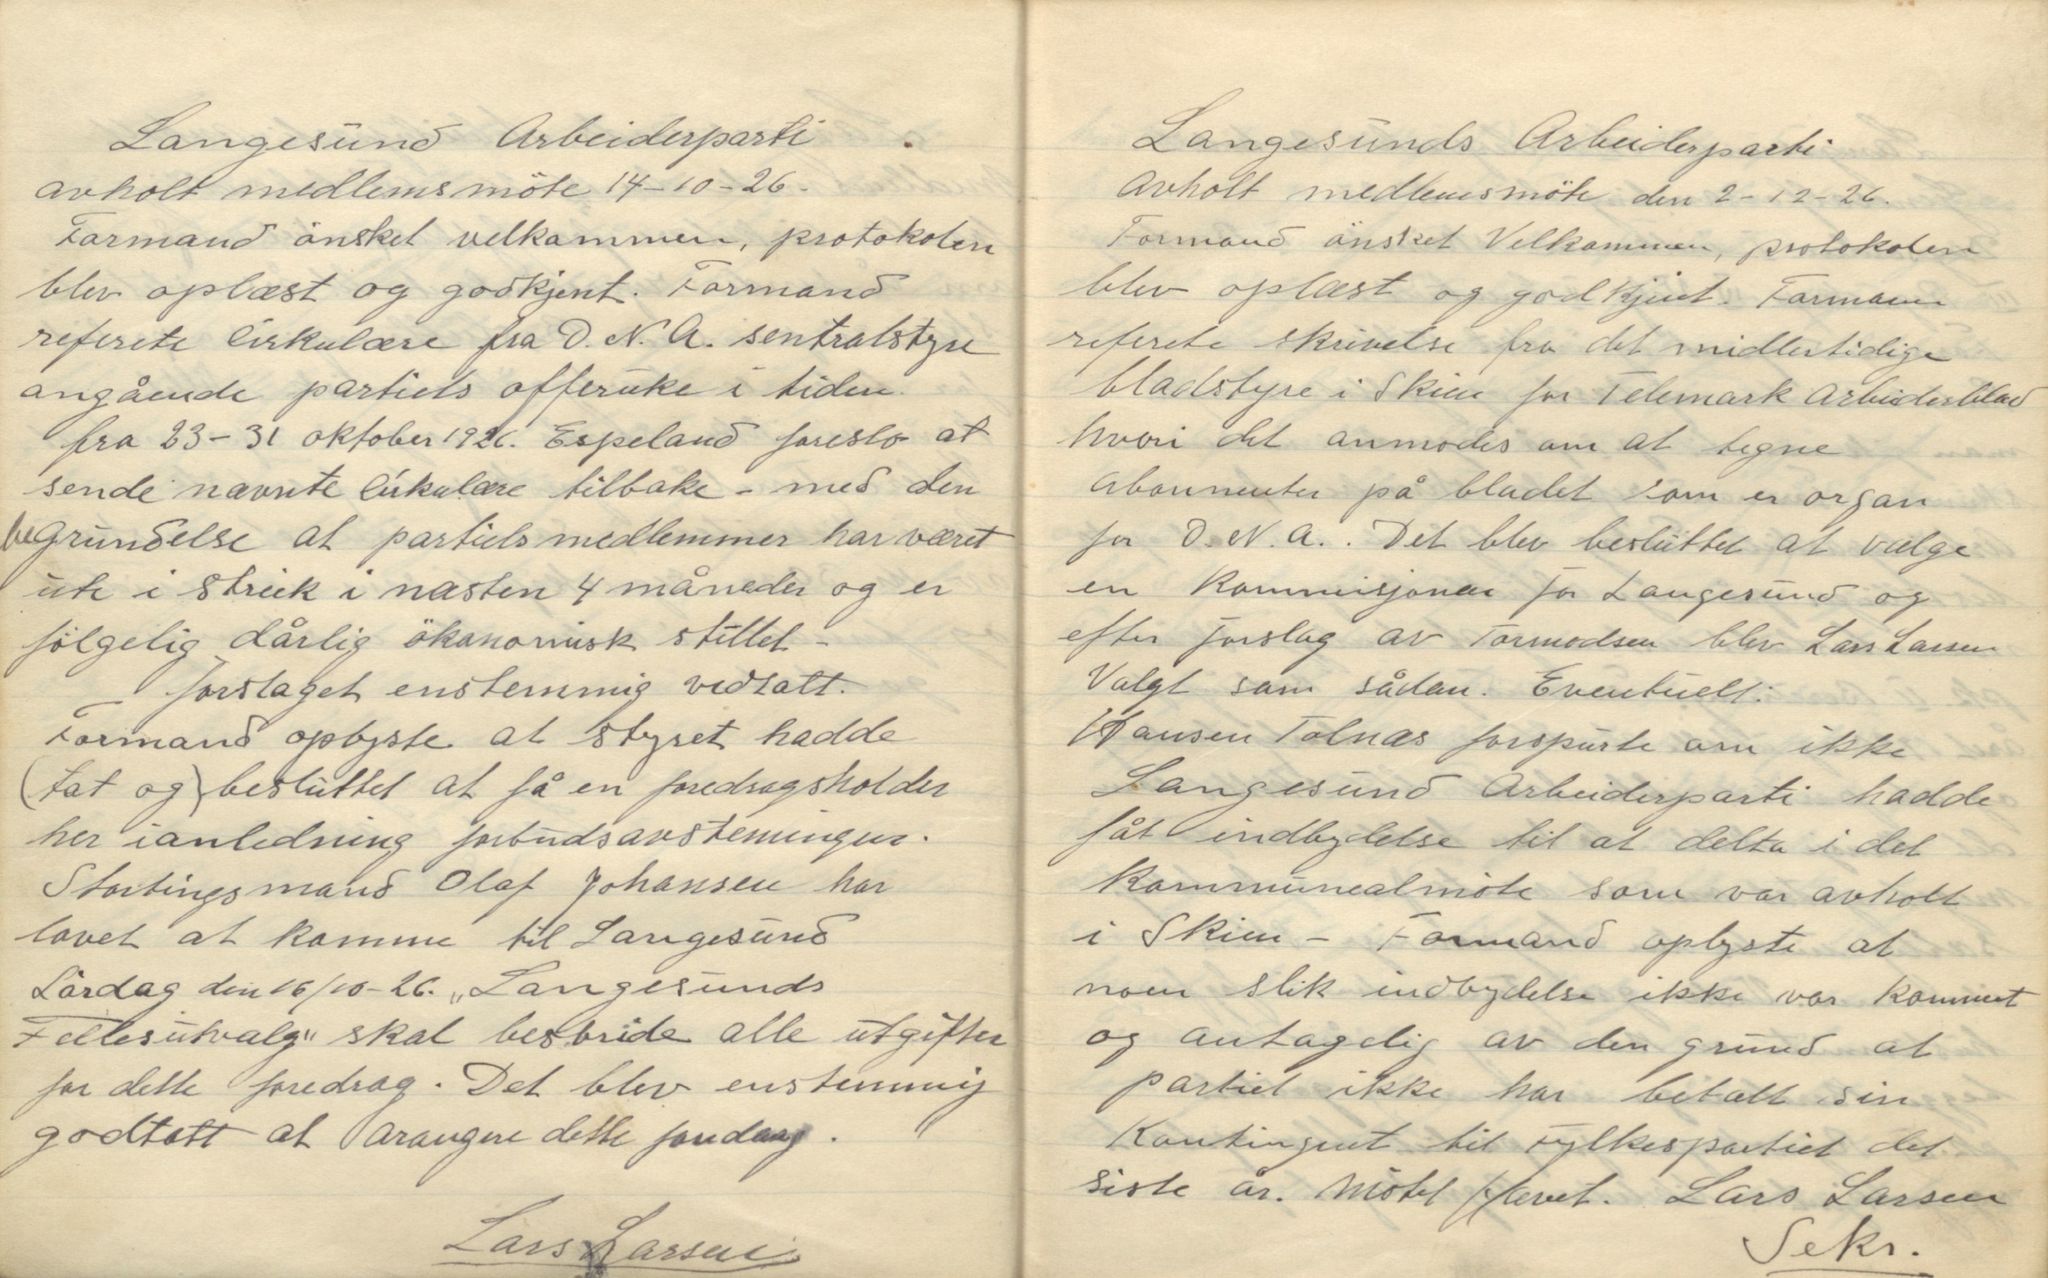 Langesund Arbeiderparti
avholt medlemsmöte 14-10-26.
Formand önsket velkommen, protokolen
blev oplæst og godkjent. Formand
referete cirkulære fra D.N.A. sentralstyre
angående partiets offeruke i tiden
fra 23-31 oktober 1926. Espeland foreslo at
sende nævnte cirkulære tilbake - med den
begrundelse at partietsmedlemmer har været
ute i streik i næsten 4 måneder og er
fölgelig dårlig ökonomisk stillet -
forslaget enstemmig vedtatt.
Formand oplyste at styret hadde
(tat og) besluttet at få en foredragsholder
her ianledning forbudsavstemingen.
Stortingsmand Olaf Johansen har
lovet at komme til Langesund
Lördag den 16/10-26. „Langesunds
Fellesutvalg" skal bestride alle utgifter
for dette foredrag. Det blev enstemmig
godtatt at arangere dette foredrag.
Lars Larsen
Langesunds Arbeiderparti
Avholt medlemsmöte den 2-12-26.
Formand önsket Velkommen, protokolen
blev oplæst og godkjent. Formann
referete skrivelse fra det midlertidige
bladstyre i Skien for Telemark Arbeiderblad
hvori det anmodes om at tegne
abonnenter på bladet som er organ
for D.N.A.. Det blev besluttet at vælge
en Kommisjonær for Langesund og
efter forslag av Tormodsen blev Lars Larsen
Valgt som sådan. Eventuelt:
Hansen Tolnæs forspurte om ikke
Langesund Arbeiderparti hadde
fåt indbydelse til at delta i det
Kommunealmöte som var avholt
i Skien - Formand oplyste at
noen slik indbydelse ikke var kommet
og antagelig av den grund at
partiet ikke har betalt sin
Kontingent til Fylkespartiet det
siste år. Mötet hevet. Lars Larsen
Sekr.